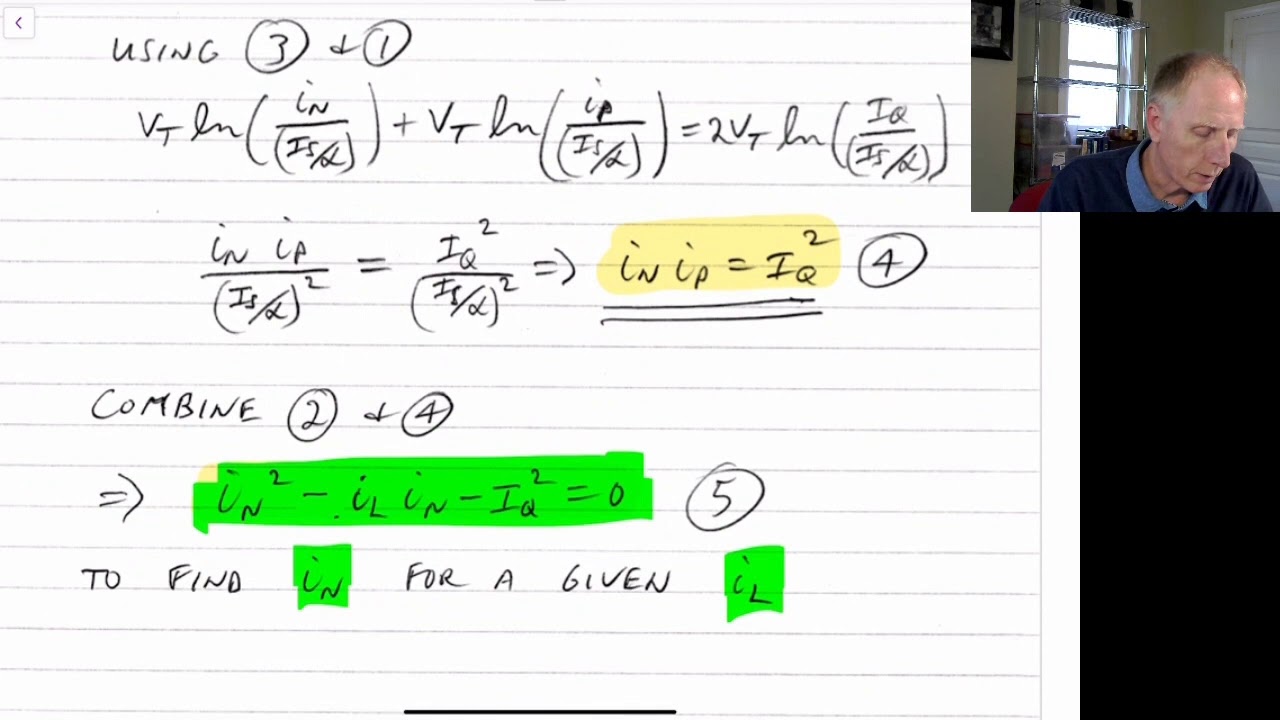 USING ③ & ①
V_T ln(i_N/(I_S/α)) + V_T ln(i_P/(I_S/α)) = 2V_T ln(I_Q/(I_S/α))
i_N i_P/(I_S/α)² = I_Q²/(I_S/α)² => i_N i_P = I_Q² ④
COMBINE ② & ④
=> i_N² - i_L i_N - I_Q² = 0 ⑤
TO FIND i_N FOR A GIVEN i_L